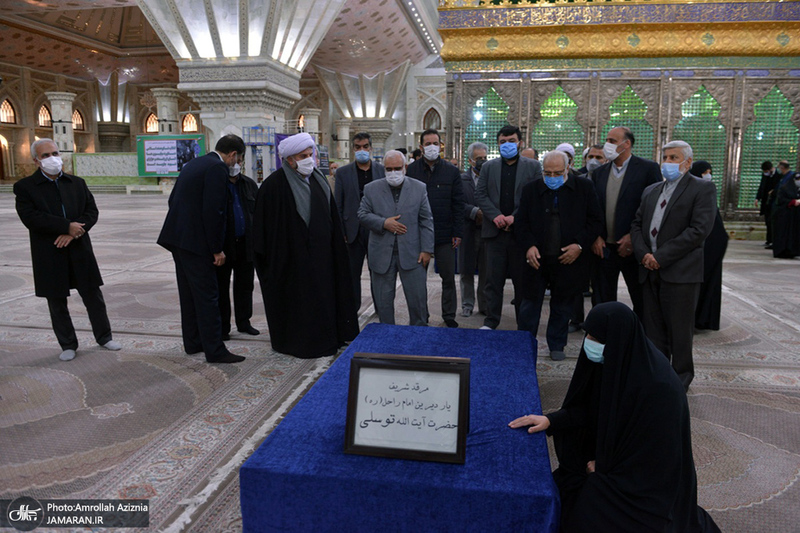 مرقد شریف
یار دیرین امام راحل (ره)
حضرت آیت الله توسلی
Photo:Amrollah Aziznia
JAMARAN.IR